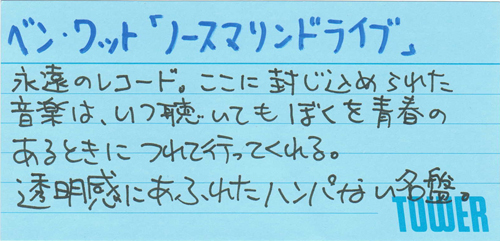 ベン・ワット「ノースマリンドライブ」
永遠のレコード。ここに封じ込められた
音楽は、いつ聴いてもぼくを青春の
あるときにつれて行ってくれる。
透明感にあふれたハンパない名盤。
TOWER